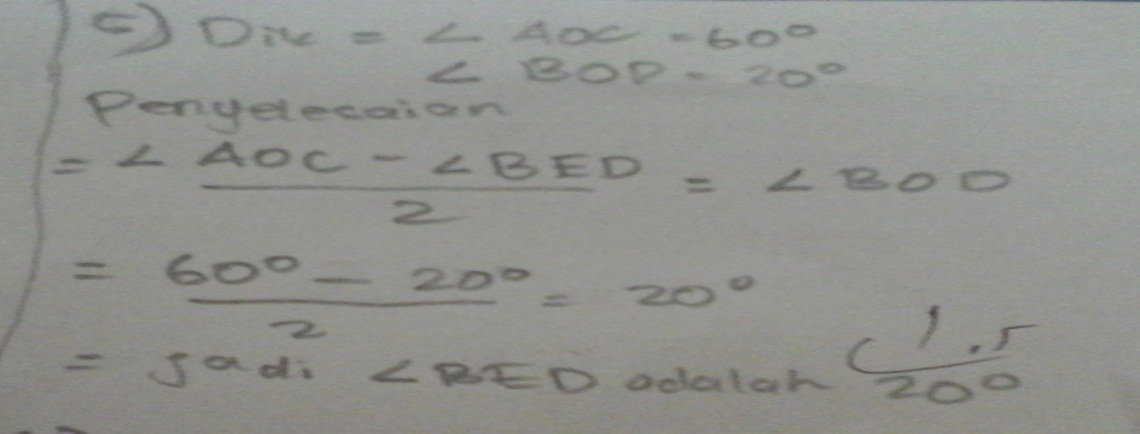 5) Dik = ∠ AOC = 60°
∠ BOD = 20°
Penyelesaian
= ∠ AOC - ∠BED / 2 = ∠ BOD
= 60° - 20° / 2 = 20°
= Jadi ∠BED adalah 20°
1.5